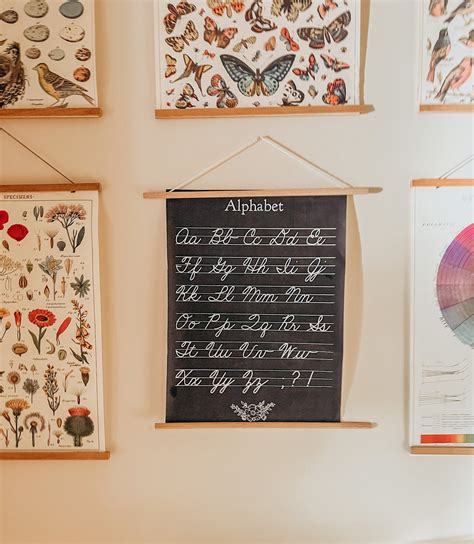 SPECIMENS
Alphabet
Aa Bb Cc Dd Ee
Ff Gg Hh Ii Jj
Kk Ll Mm Nn
Oo Pp Qq Rr Ss
Tt Uu Vv Ww
Xx Yy Zz , ? !